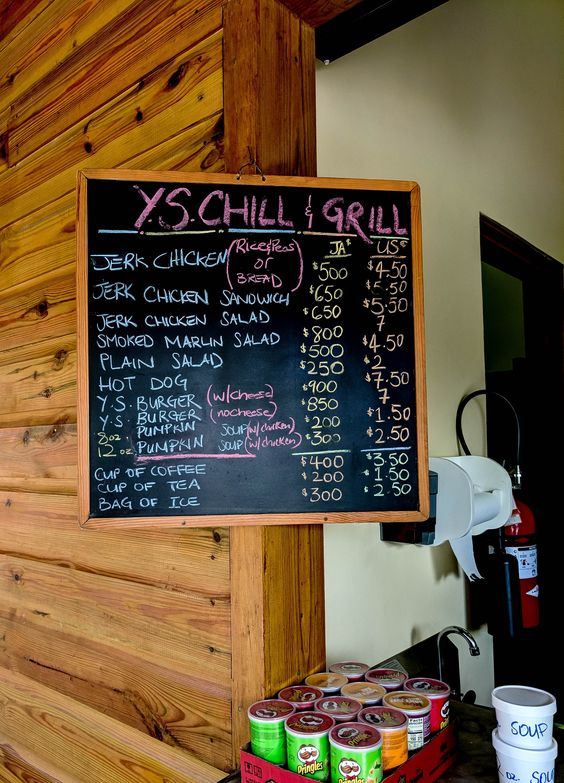 Y.S. CHILL & GRILL
JA$ US$
JERK CHICKEN (RICE & PEAS or BREAD) $500 $4.50
JERK CHICKEN SANDWICH $650 $5.50
JERK CHICKEN SALAD $650 $5.50
SMOKED MARLIN SALAD $800 7
PLAIN SALAD $500 $4.50
HOT DOG $250 $2
Y.S. BURGER (w/cheese) $900 $7.50
Y.S. BURGER (no cheese) $850 7
8oz. PUMPKIN SOUP (w/chicken) $200 $1.50
12oz. PUMPKIN SOUP (w/chicken) $300 $2.50
CUP OF COFFEE $400 $3.50
CUP OF TEA $200 $1.50
BAG OF ICE $300 $2.50
Pringles
Pringles
Pringles
SOUP
SOUP